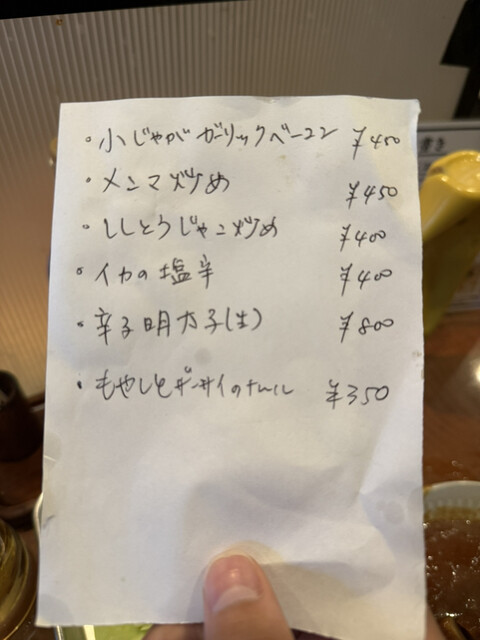 ・小じゃが ガーリックベーコン ¥450
・メンマ炒め ¥450
・ししとうじゃこ炒め ¥400
・イカの塩辛 ¥400
・辛子明太子(生) ¥800
・もやしとザーサイのナムル ¥350
書き